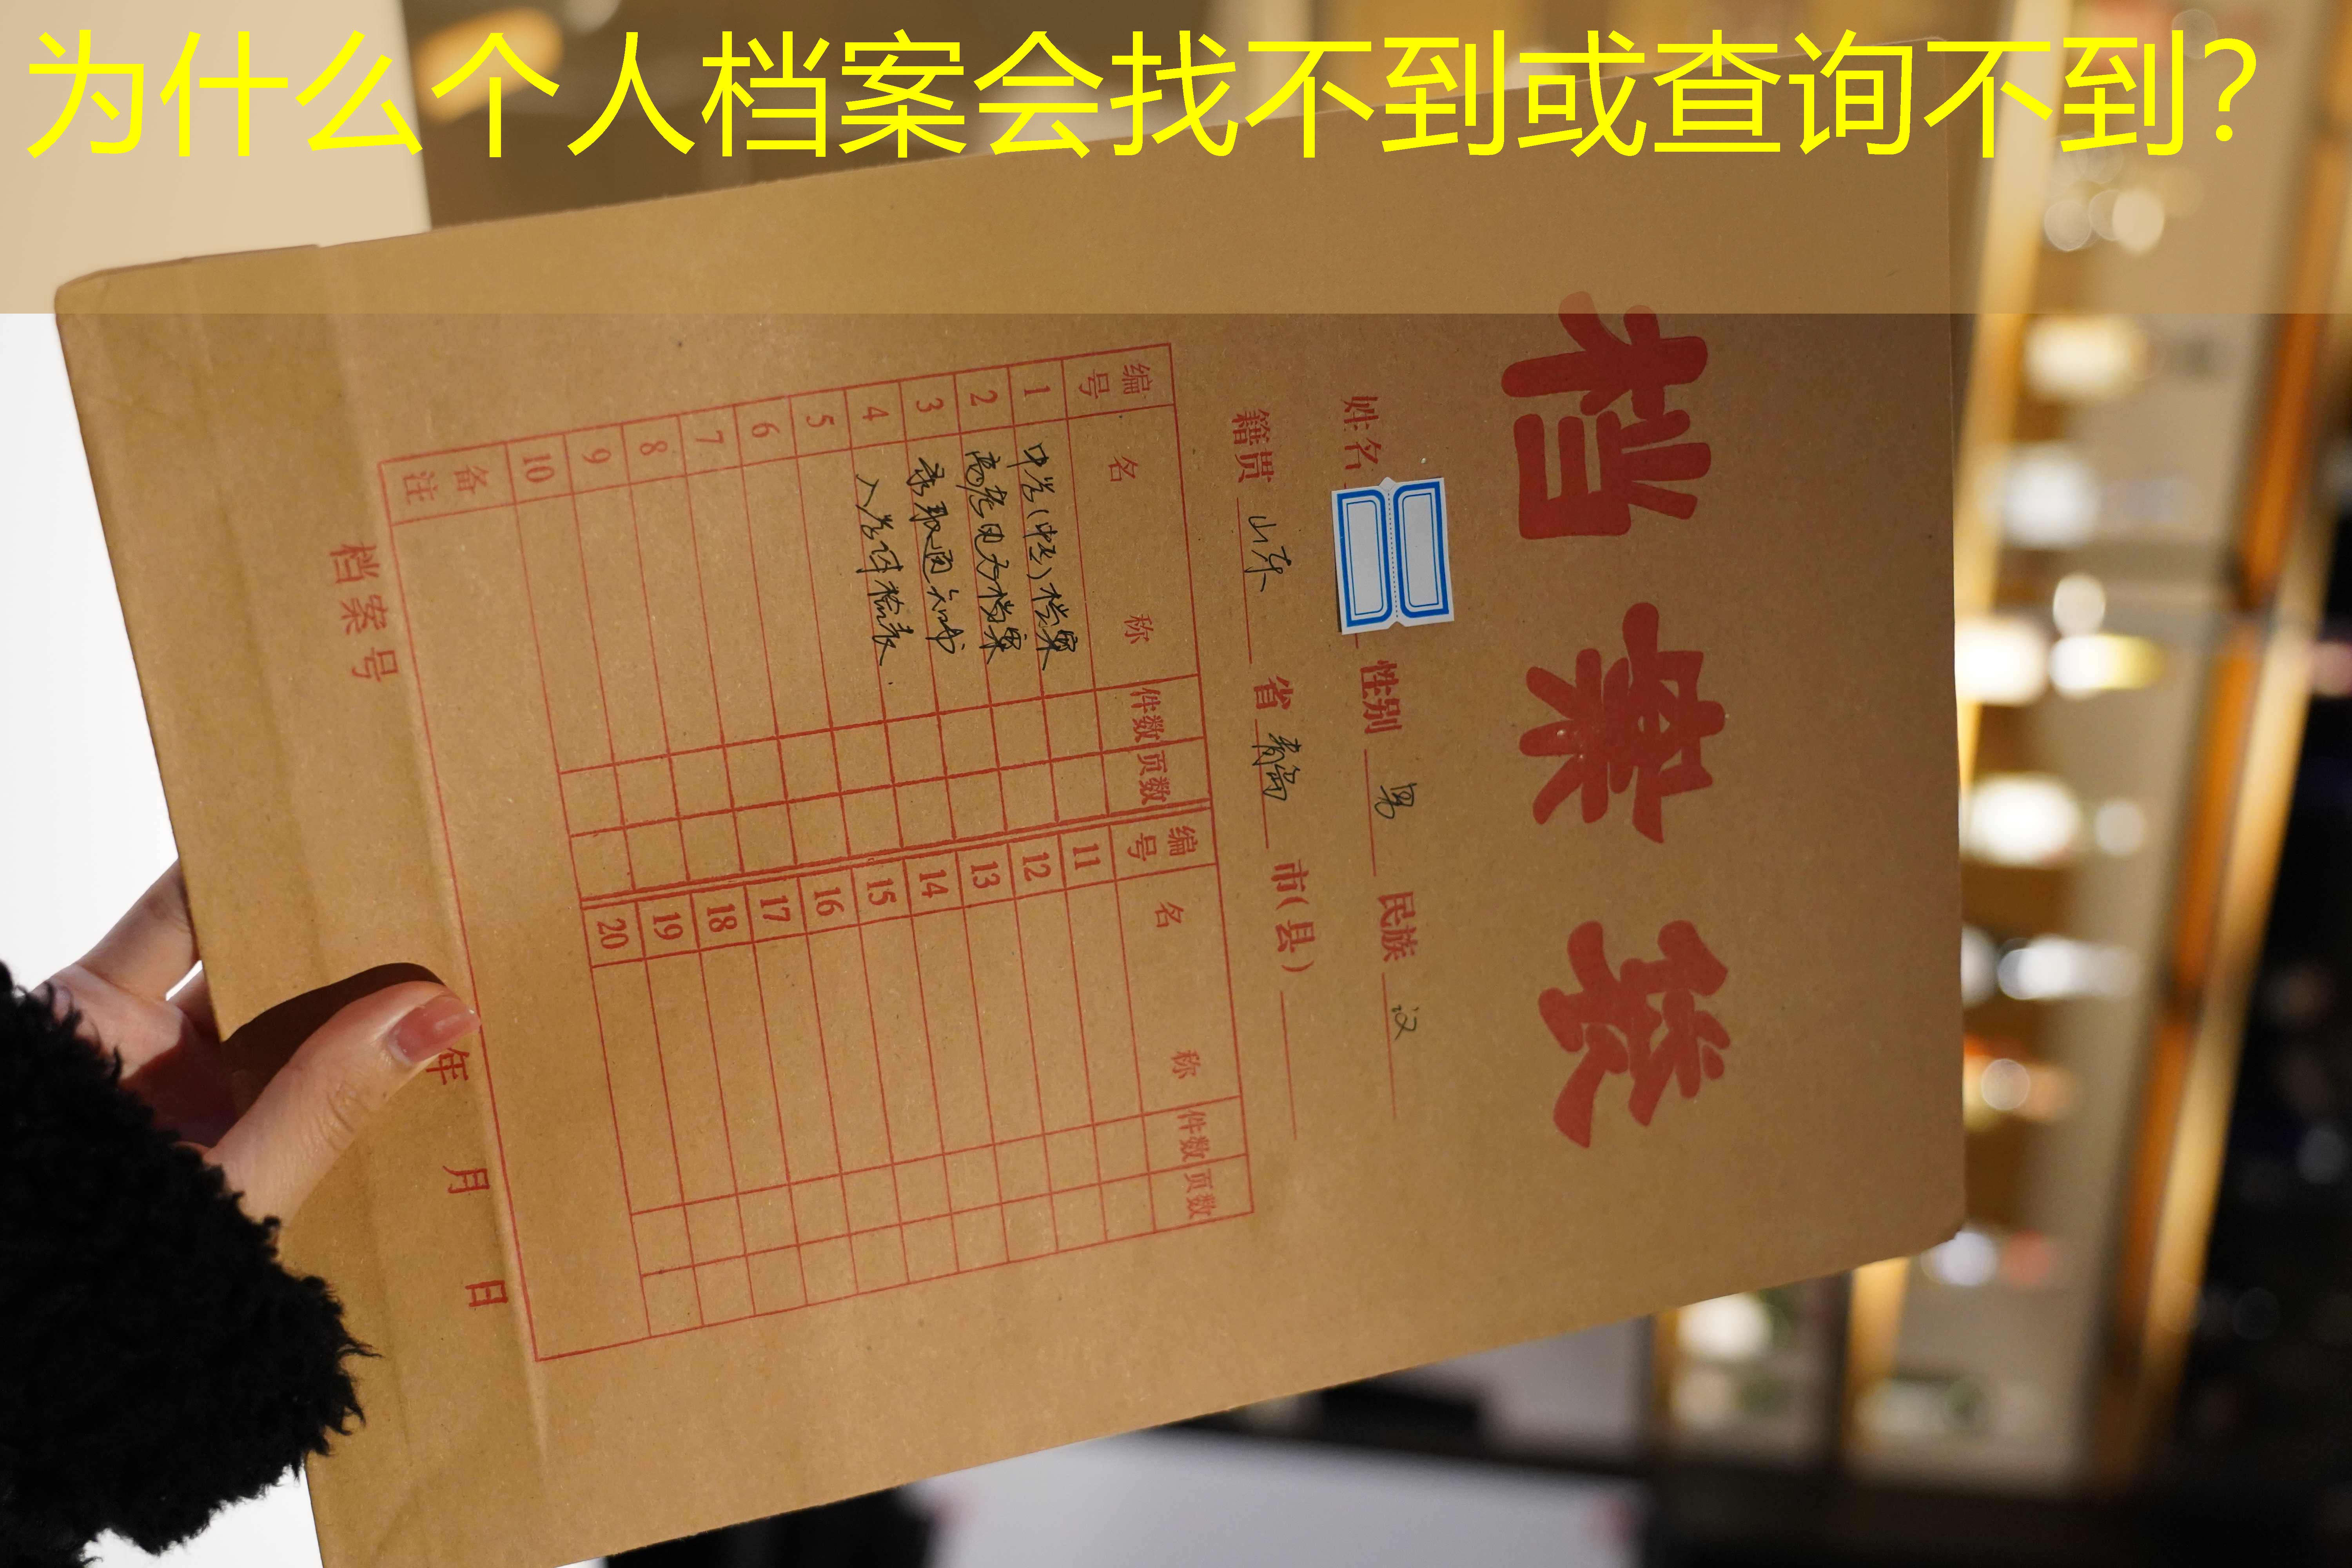 为什么个人档案会找不到或查询不到?
档案袋
姓名 性别 男 民族 汉
籍贯 山东 省 青岛 市(县)
编号 名称 件数 页数 编号 名称 件数 页数
1 中学(中专)档案 11
2 高考电子档案 12
3 录取通知书 13
4 入学体检表 14
5 15
6 16
7 17
8 18
9 19
10 20
备注
档案号 年 月 日